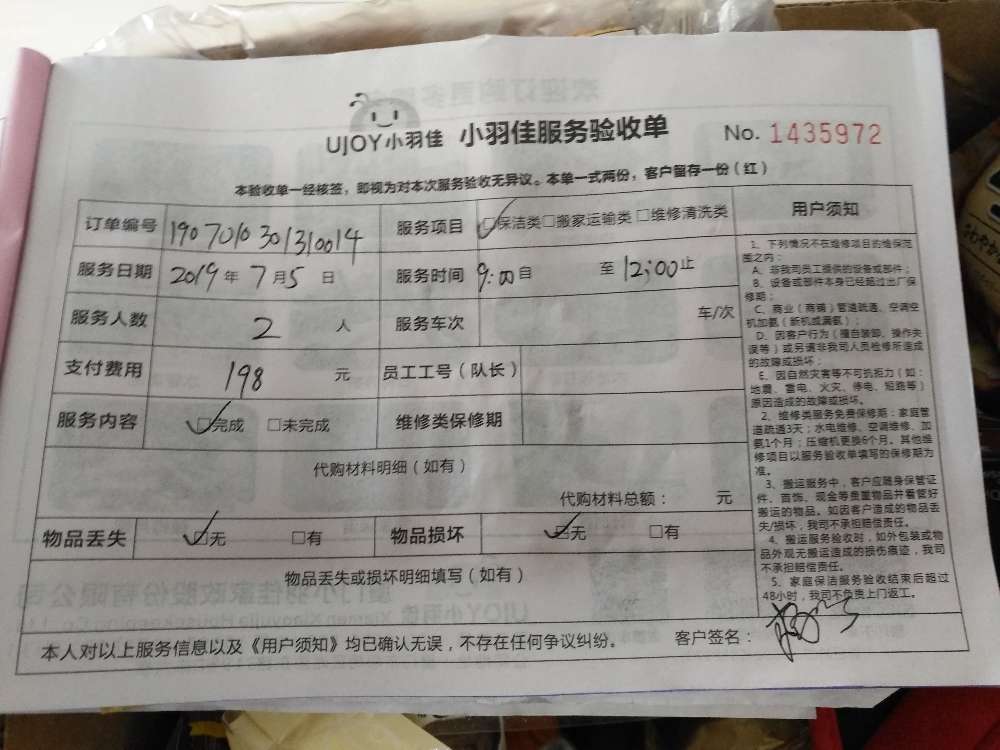 UJOY小羽佳 小羽佳服务验收单 No. 1435972
本验收单一经核签，即视为对本次服务验收无异议。本单一式两份，客户留存一份（红）
订单编号 1907010301310014 服务项目 ☑保洁类□搬家运输类 □维修清洗类
服务日期 2019年7月5日 服务时间 9:00自 至 12:00止
服务人数 2 人 服务车次 车/次
支付费用 198 元 员工工号（队长）
服务内容 ☑完成 □未完成 维修类保修期
代购材料明细（如有）
代购材料总额： 元
物品丢失 ☑无 □有 物品损坏 ☑无 □有
物品丢失或损坏明细填写（如有）
用户须知
1、下列情况不在维修项目的维保范
围之内：
A、非我司员工提供的设备或部件；
B、设备或部件本身已经超过出厂保
修期；
C、商业（商铺）管道疏通、空调空
机加氨（新机或漏氨）；
D、因客户行为（擅自装卸、操作失
误等）或另请非我司人员检修所造成
的故障或损坏；
E、因自然灾害等不可抗拒力（如：
地震、雷电、火灾、停电、短路等）
原因造成的故障或损坏。
2、维修类服务免费保修期：家庭管
道疏通3天；水电维修、空调维修、加
氨1个月；压缩机更换6个月。其他维
修项目以服务验收单填写的保修期为
准。
3、搬运服务中，客户应随身保管证
件、首饰、现金等贵重物品并看管好
搬运的物品。如因客户造成的物品丢
失/损坏，我司不承担赔偿责任。
4、搬运服务验收时，如外包装或物
品外观无搬运造成的损伤痕迹，我司
不承担赔偿责任。
5、家庭保洁服务验收结束后超过
48小时，我司不负责上门返工。
本人对以上服务信息以及《用户须知》均已确认无误，不存在任何争议纠纷。 客户签名：